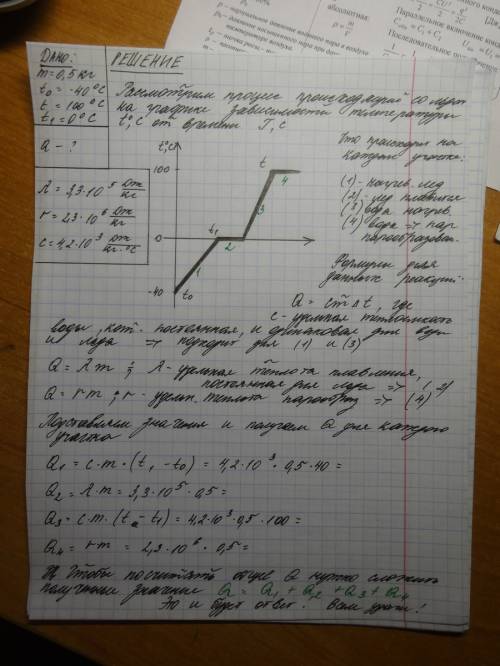 абсолютная:
Параллельное включение конд
ДАНО:
РЕШЕНИЕ
m = 0,5 кг
t₀ = -40 °C
t = 100 °C
t₁ = 0 °C
Q - ?
λ = 3,3·10⁵ Дж/кг
r = 2,3·10⁶ Дж/кг
c = 4,2·10³ Дж/кг·°C
Рассмотрим процесс происходящий со льдом
на графике зависимости температуры
t°, C от времени T, c
t°, C
100
0
-40
t₀
t₁
t
1
2
3
4
Что происходит на
каждом участке:
(1) - нагрев. льд
(2) - лед плавится
(3) вода нагрев.
(4) вода => пар
парообразован.
Формулы для
данных реакций:
Q = cm∆t, где
c - удельная теплоемкость
воды, кот. постоянная, и одинаковая для воды
и льда => подходит для (1) и (3)
Q = λm ; λ - удельная теплота плавления,
постоянная для льда => (2)
Q = rm ; r - удельн. теплота парообраз => (4)
Подставляем значения и получаем Q для каждого
участка
Q₁ = c·m·(t₁ - t₀) = 4,2·10³·0,5·40 =
Q₂ = λ·m = 3,3·10⁵·0,5 =
Q₃ = c·m·(t - t₁) = 4,2·10³·0,5·100 =
Q₄ = r·m = 2,3·10⁶·0,5 =
Чтобы посчитать общее Q нужно сложить
полученные значения Q = Q₁ + Q₂ + Q₃ + Q₄
Это и будет ответ. Всем удачи!